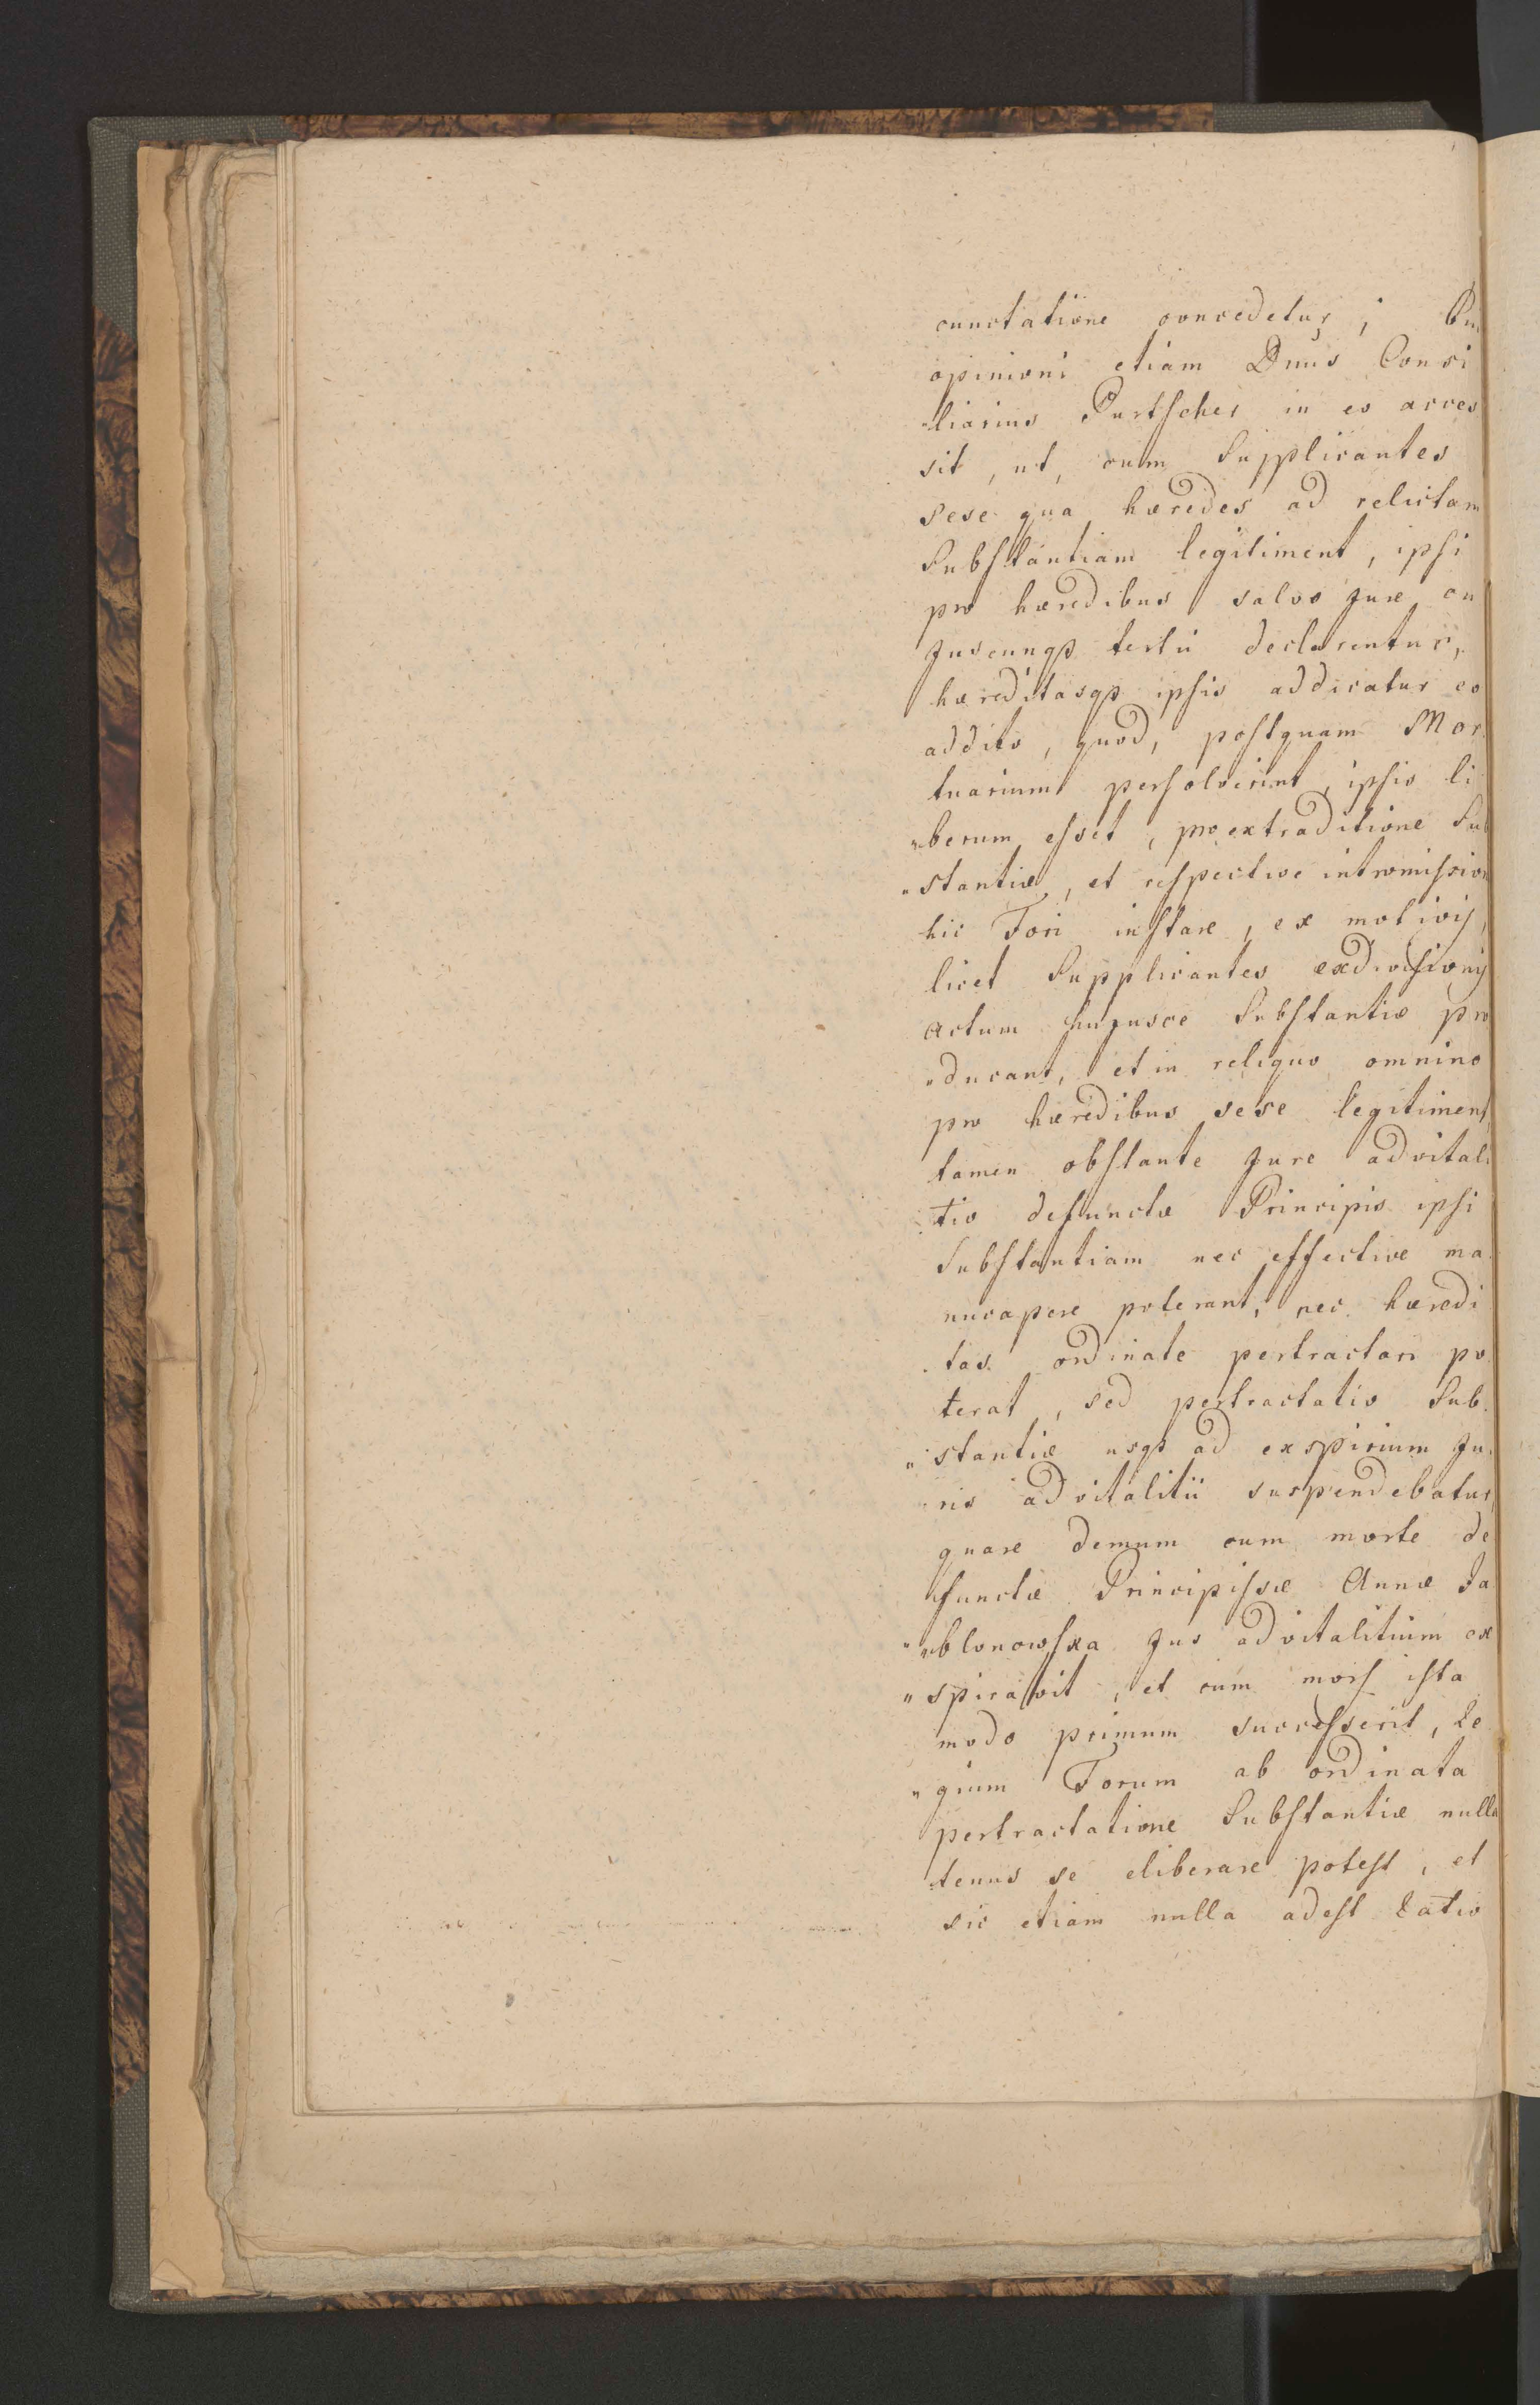 cunctatione concedetur; Cui
opinioni etiam Dnus Consi
"liarius Purtscher in eo acces
sit, ut, cum Supplicantes
sese qua hæredes ad relictam
Substantiam legitiment, ipsi
pro hæredibus salvo Jure cu
juscunqs tertii declarentur,
hæreditasqs ipsis addicatur eo
addito, quod, postquam Mor
tuarium persolverint, ipsis li
"berum esset, pro extraditione Sub
"stantiæ, et respective intromission
hic Fori instare, ex motivis,
licet Supplicantes exdivisionis
actum hujusce Substantiæ pro
"ducant, et in reliquo omnino
pro hæredibus sese legitiment,
tamen obstante Jure advitali
tio defunctæ Principis ipsi
Substantiam nec effective ma
nucapere poterant, nec hæredi
tas ordinate pertractari po
terat, sed pertractatio Sub
"stantiæ usqs ad exspirium Ju
ris advitalitii suspendebatur,
quare demum cum morte de
functæ Principissæ Annæ Ja
"blonowska Jus advitalitium ex
"spiravit, et cum mors ista
modo primum successerit, Re
"gium Forum ab ordinata
pertractatione Substantiæ nulla
tenus se eliberare potest, et
sic etiam nulla adest Ratio